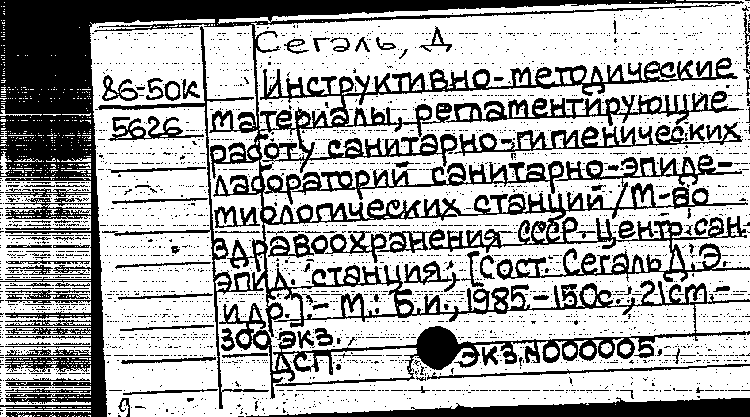 Сегаль, Д
86-50К Инструктивно-методические
5626 материалы, регламентирующие
работу санитарно-гигиенических
лабораторий санитарно-эпиде-
миологических станций / М-во
здравоохранения СССР. Центр. сан.
эпид. станция; [Сост. Сегаль Д. Э.
и др.]. - М.: Б.и., 1985. - 150с.; 21см. -
300 экз.
ДСП. Экз.N000005.
9-